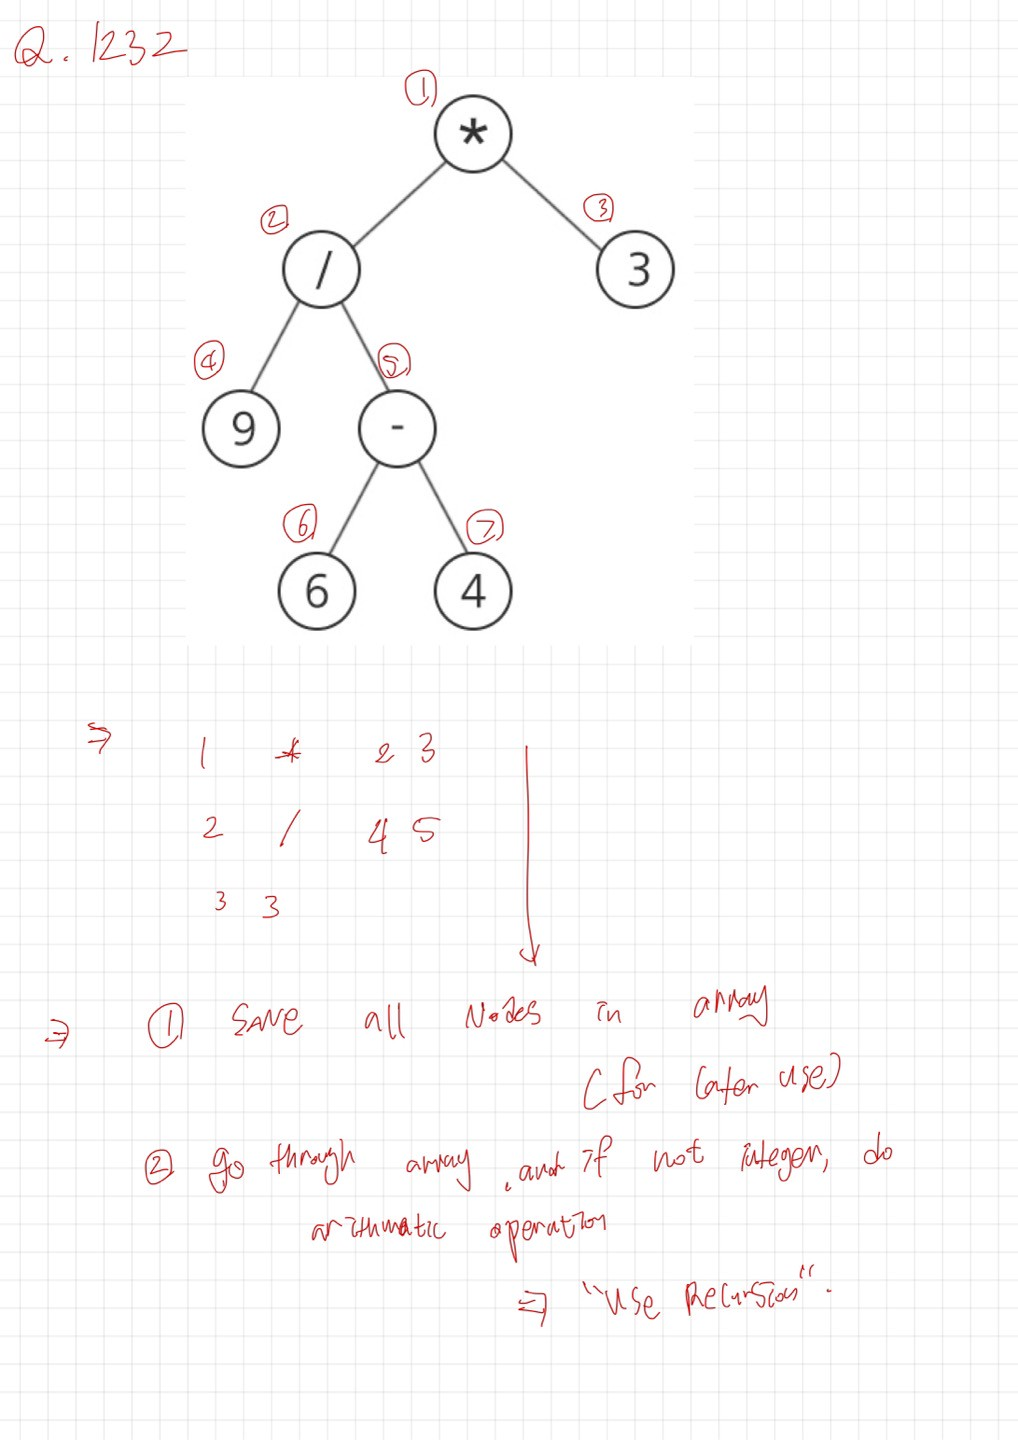 Q. 1232
①
*
②
③
/
3
④
⑤
9
-
⑥
⑦
6
4
⇒ 1 * 2 3
2 / 4 5
3 3
⇒ ① SAVE all Nodes in array
(for later use)
② go through array, and if not integer, do
arithmatic operation
⇒ "Use Recursion".